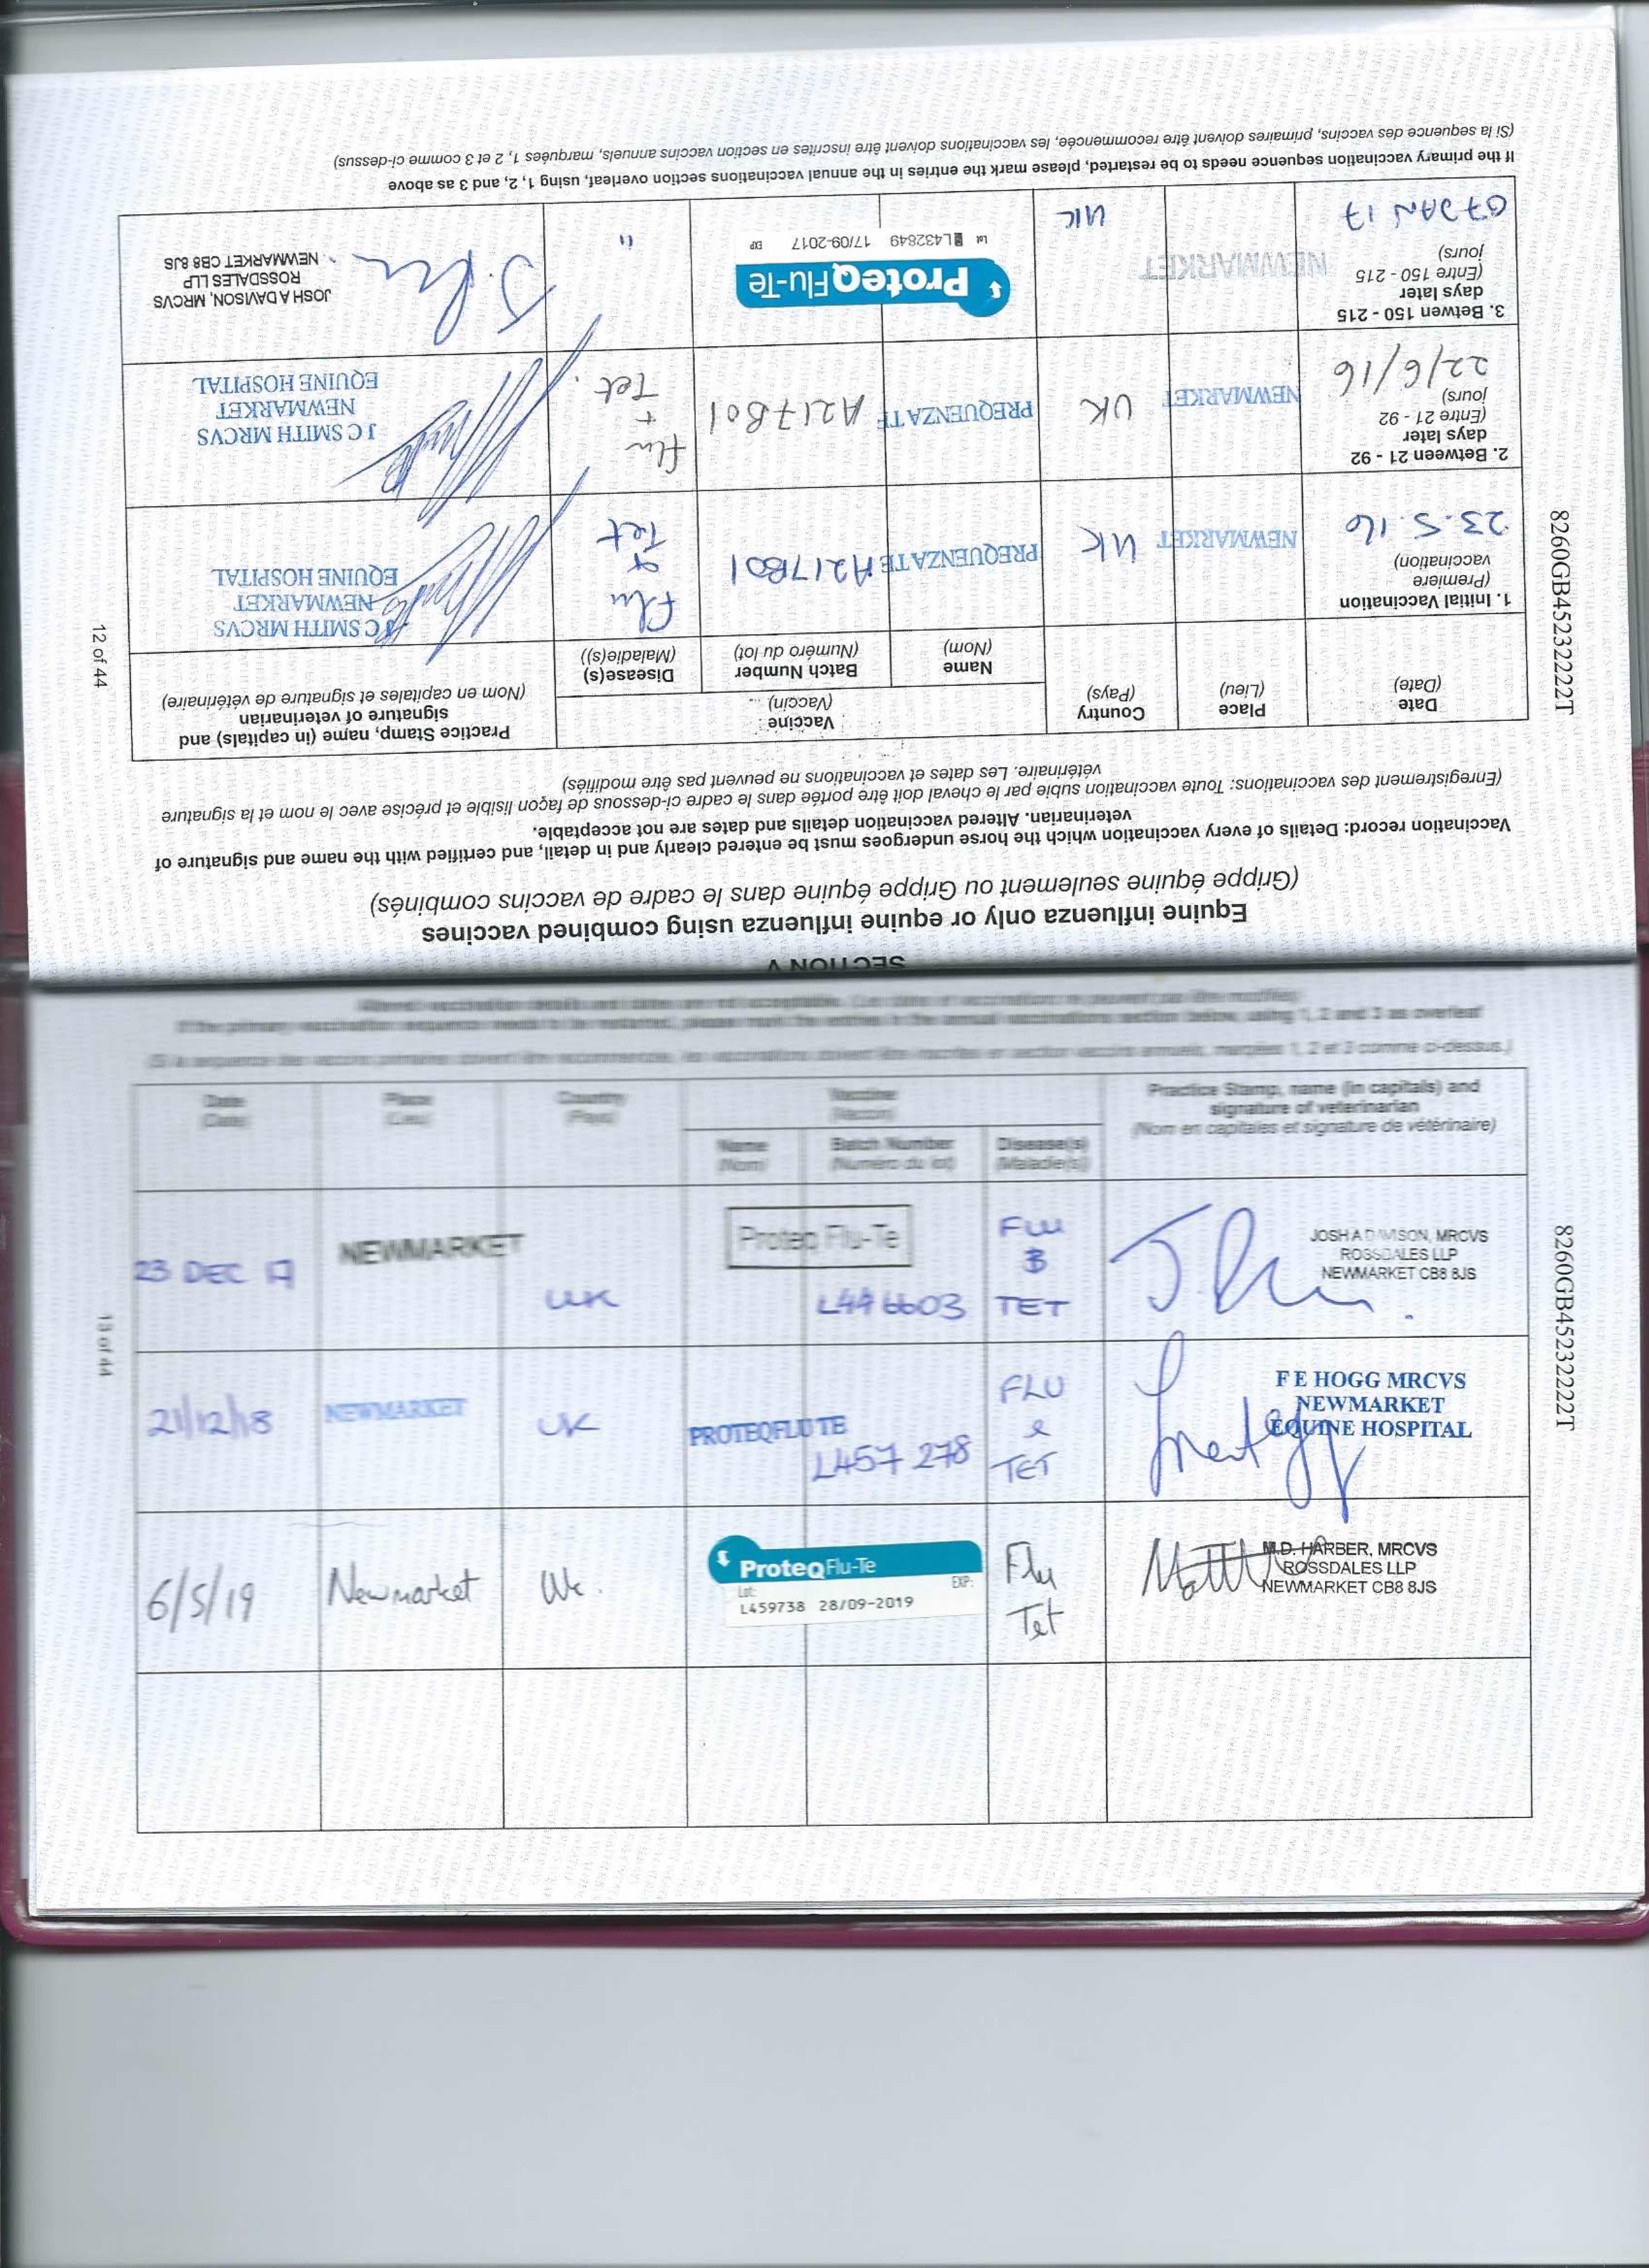 SECTION V
Equine influenza only or equine influenza using combined vaccines
(Grippe équine seulement ou Grippe équine dans le cadre de vaccins combinés)
Vaccination record: Details of every vaccination which the horse undergoes must be entered clearly and in detail, and certified with the name and signature of
veterinarian. Altered vaccination details and dates are not acceptable.
(Enregistrement des vaccinations: Toute vaccination subie par le cheval doit être portée dans le cadre ci-dessous de façon lisible et précise avec le nom et la signature
vétérinaire. Les dates et vaccinations ne peuvent pas être modifiés)
Date
(Date)
Place
(Lieu)
Country
(Pays)
Vaccine
(Vaccin)
Name
(Nom)
Batch Number
(Numéro du lot)
Disease(s)
(Maladie(s))
Practice Stamp, name (in capitals) and
signature of veterinarian
(Nom en capitales et signature de vétérinaire)
1. Initial Vaccination
(Première
vaccination)
23.5.16
NEWMARKET
UK
PREQUENZA TE
A217B01
Flu
&
Tet
J C SMITH MRCVS
NEWMARKET
EQUINE HOSPITAL
2. Between 21 - 92
days later
(Entre 21 - 92
jours)
22/6/16
NEWMARKET
UK
PREQUENZA TE
A217B01
Flu
+
Tet.
J C SMITH MRCVS
NEWMARKET
EQUINE HOSPITAL
3. Betwen 150 - 215
days later
(Entre 150 - 215
jours)
07 JAN 17
NEWMARKET
UK
ProteqFlu-Te
Lot L432849 17/09-2017 EXP
"
JOSH A DAVISON, MRCVS
ROSSDALES LLP
NEWMARKET CB8 8JS
If the primary vaccination sequence needs to be restarted, please mark the entries in the annual vaccinations section overleaf, using 1, 2, and 3 as above
(Si la sequence des vaccins, primaires doivent être recommencée, les vaccinations doivent être inscrites en section vaccins annuels, marquées 1, 2 et 3 comme ci-dessus)
8260GB45232222T
12 of 44
If the primary vaccination sequence needs to be restarted, please mark the entries in the annual vaccinations section below, using 1, 2 and 3 as overleaf
Date
(Date)
Place
(Lieu)
Country
(Pays)
Vaccine
(Vaccin)
Name
(Nom)
Batch Number
(Numéro du lot)
Disease(s)
(Maladie(s))
Practice Stamp, name (in capitals) and
signature of veterinarian
(Nom en capitales et signature de vétérinaire)
23 DEC 17
NEWMARKET
UK
Proteq Flu-Te
L446603
FLU
&
TET
JOSH A DAVISON, MRCVS
ROSSDALES LLP
NEWMARKET CB8 8JS
21/12/18
NEWMARKET
UK
PROTEQFLU TE
L457278
FLU
&
TET
F E HOGG MRCVS
NEWMARKET
EQUINE HOSPITAL
6/5/19
Newmarket
UK.
ProteqFlu-Te
Lot: EXP:
L459738 28/09-2019
Flu
Tet
M.D. HARBER, MRCVS
ROSSDALES LLP
NEWMARKET CB8 8JS
8260GB45232222T
13 of 44